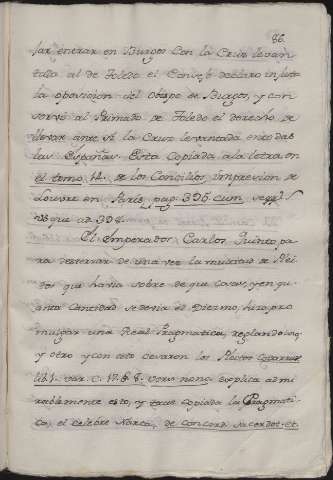 86.
jar entrar en Burgos con la Cruz levan
tada al de Toledo el Consejo declaro injusta
la oposicion del Obispo de Burgos, y con
servó al Primado de Toledo el derecho de
llevar ante si la Cruz levantada en todas
las Españas. Esta Copiada a la letra en
el tomo 14. de los Concilios, impresion de
Louvre en Paris pag. 396. cum seqq.
usque ad 398.
El Emperador Carlos Quinto, pa
ra desterrar de una vez la multitud de Plei
tos que havia sobre de que cosas, y en qu
anta Cantidad se devia el Diezmo, hizo, pro
mulgar una Real Pragmatica, reglando uno
y otro y con esto cesaron los Pleitos Covarruv.
lib. 1. var. c. 17. § 8. vers. nono explica admi
rablemente esto, y trae copiada la Pragmati
ca, el celebre Narea, de Concord. Sacerdot. et